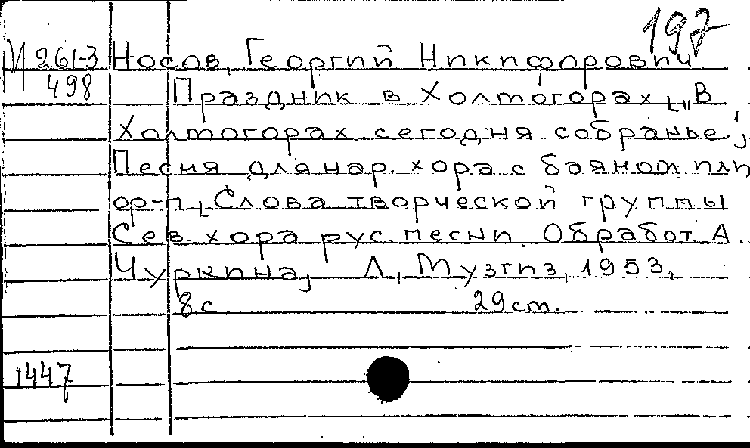 197
М 261-3 Носов, Георгий Никифорович
498 Праздник в Холмогорах, „В
Холмогорах сегодня собранье";
Песня для нар. хора с баяном или
ор-п, Слова творческой группы
Сев хора рус песни. Обработ. А.
Чуркина, Л, Музгиз, 1953,
8 с 29 cm.
1447